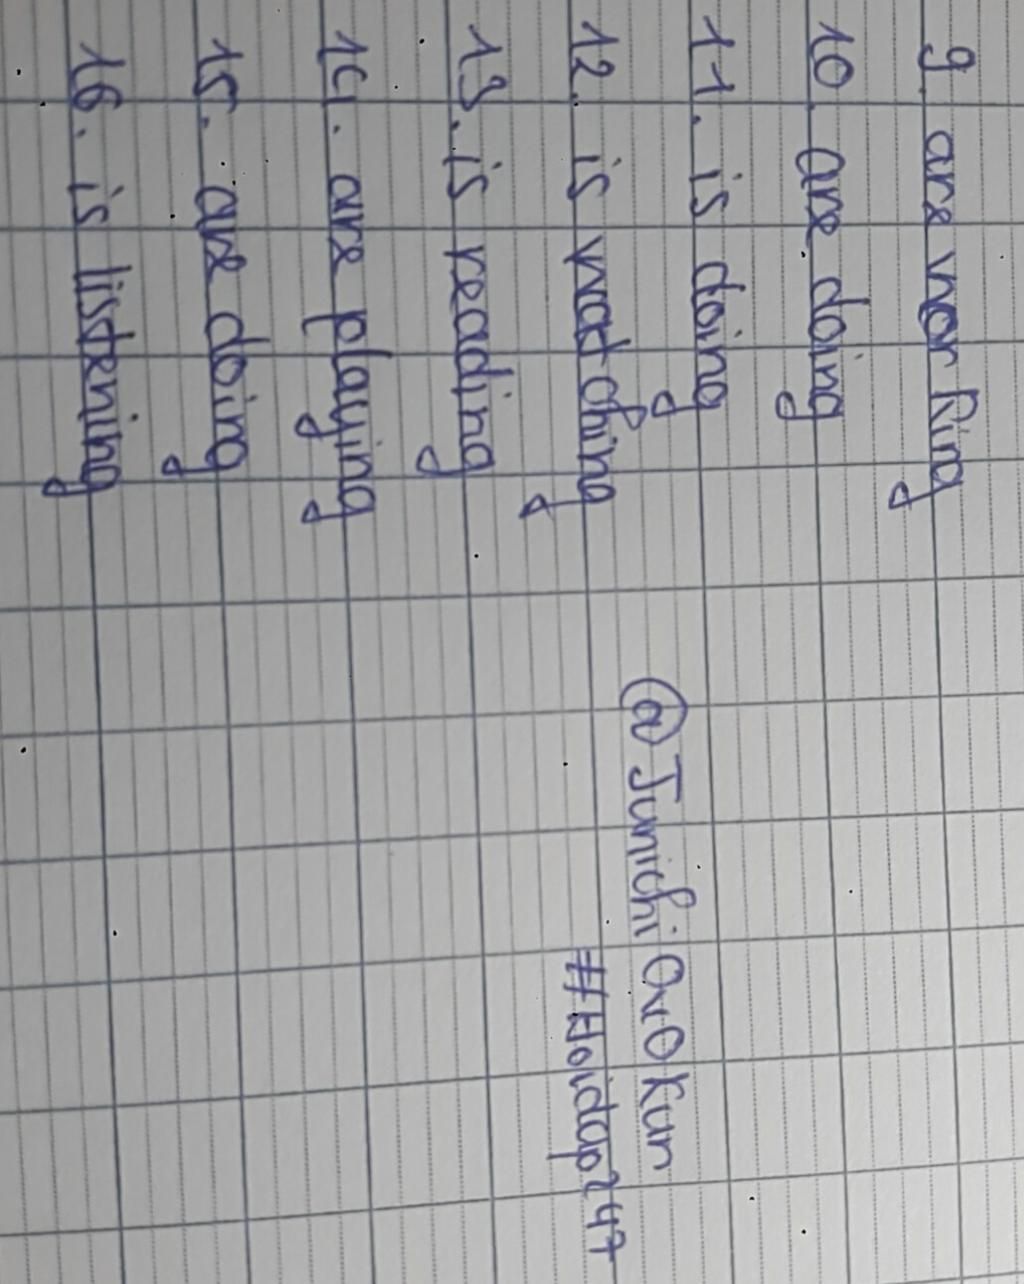 9. are working
10. are doing
11. is doing
12. is watching
13. is reading
14. are playing
15. are doing
16. is listening
@JunichiOvOKun
#Hoidap247